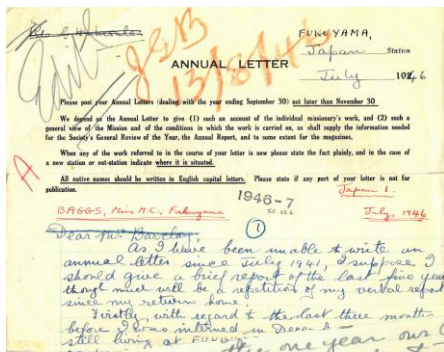 FUKUYAMA,
Japan Station
ANNUAL LETTER
July 1946
J&B
13/8/46
Edit.
Please post your Annual Letters (dealing with the year ending September 30) not later than November 30
We depend on the Annual Letter to give (1) such an account of the individual missionary's work, and (2) such a
general view of the Mission and of the conditions in which the work is carried on, as shall supply the information needed
for the Society's General Review of the Year, the Annual Report, and to some extent for the magazines.
When any of the work referred to in the course of your letter is new please state the fact plainly, and in the case of
a new station or out-station indicate where it is situated.
All native names should be written in English capital letters. Please state if any part of your letter is not for
publication.
A
1946-7
Japan 1.
BAGGS, Miss M.C., Fukuyama
July, 1946
1
Dear Mr Barclay,
As I have been unable to write an
annual letter since July 1941, I suppose I
should give a brief report of the last five years
though much will be a repetition of my verbal report
since my return home.
Firstly, with regard to the last three months
before I was interned in
still living at
the one year our